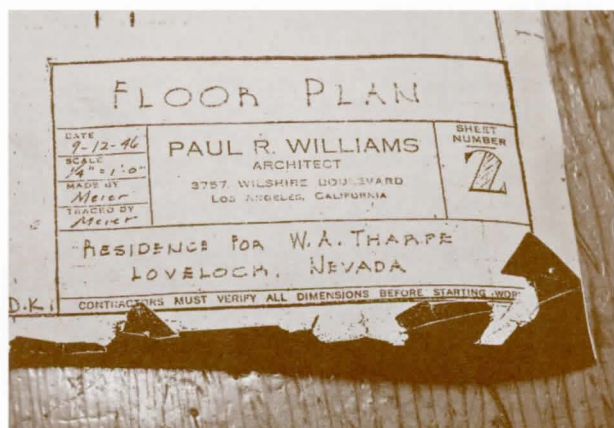 FLOOR PLAN
DATE
9-12-46
SCALE
1/4" = 1'-0"
MADE BY
Meier
TRACED BY
Meier
PAUL R. WILLIAMS
ARCHITECT
3757 WILSHIRE BOULEVARD
LOS ANGELES, CALIFORNIA
SHEET
NUMBER
2
RESIDENCE FOR W. A. THARPE
LOVELOCK, NEVADA
D.K.
CONTRACTORS MUST VERIFY ALL DIMENSIONS BEFORE STARTING